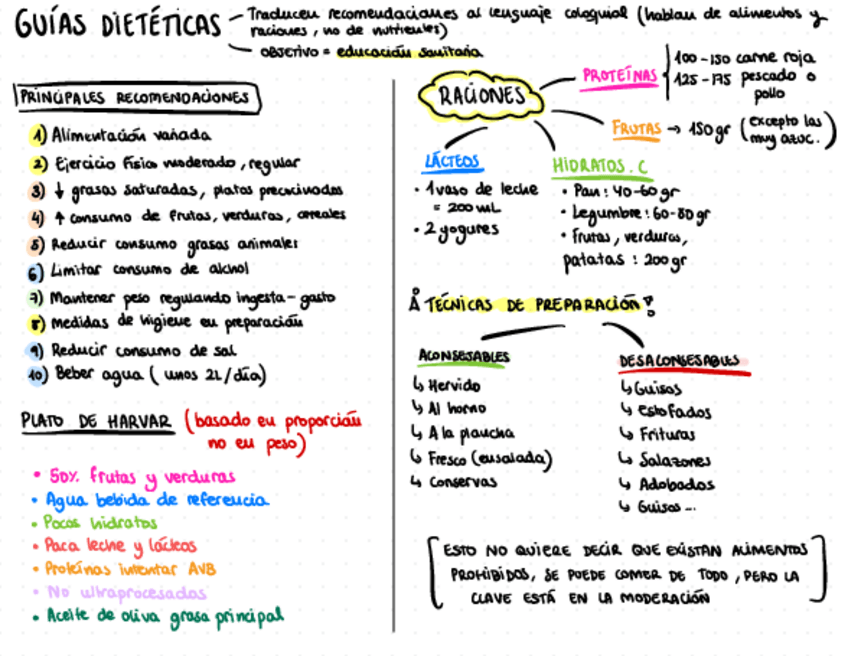 GUÍAS DIETÉTICAS
Traducen recomendaciones al lenguaje coloquial (hablan de alimentos y
raciones, no de nutrientes)
OBJETIVO = educación sanitaria
PRINCIPALES RECOMENDACIONES
1) Alimentación variada
2) Ejercicio físico moderado, regular
3) ↓ grasas saturadas, platos precocinados
4) ↑ consumo de frutas, verduras, cereales
5) Reducir consumo grasas animales
6) Limitar consumo de alchol
7) Mantener peso regulando ingesta-gasto
8) medidas de higiene en preparación
9) Reducir consumo de sal
10) Beber agua (unos 2L/día)
PLATO DE HARVAR (basado en proporción
no en peso)
• 50% frutas y verduras
• Agua bebida de referencia
• Pocos hidratos
• Poca leche y lácteos
• Proteínas intentar AVB
• No ultraprocesados
• Aceite de oliva grasa principal
RACIONES
PROTEÍNAS
100-150 carne roja
125-175 pescado o
pollo
FRUTAS → 150gr (excepto las
muy azuc.)
LÁCTEOS
• 1 vaso de leche
= 200 mL
• 2 yogures
HIDRATOS.C
• Pan: 40-60 gr
• Legumbre: 60-80 gr
• Frutas, verduras,
patatas: 200gr
TÉCNICAS DE PREPARACIÓN
ACONSEJABLES
↳ Hervido
↳ Al horno
↳ A la plancha
↳ Fresco (ensalada)
↳ Conservas
DESACONSEJABLES
↳ Guisos
↳ Estofados
↳ Frituras
↳ Salazones
↳ Adobados
↳ Guisos...
[ESTO NO QUIERE DECIR QUE EXISTAN ALIMENTOS
PROHIBIDOS, SE PUEDE COMER DE TODO, PERO LA
CLAVE ESTÁ EN LA MODERACIÓN]